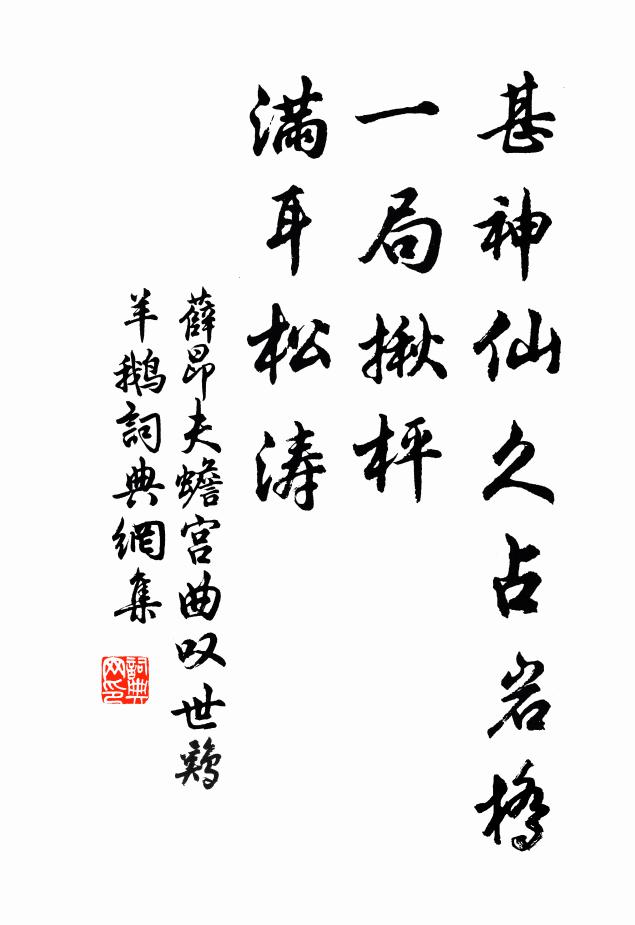 甚神仙久占岩桥
一局揪枰
满耳松涛
薛昂夫蟾宫曲叹世鸡
羊鹅詞典網集
詞典网印